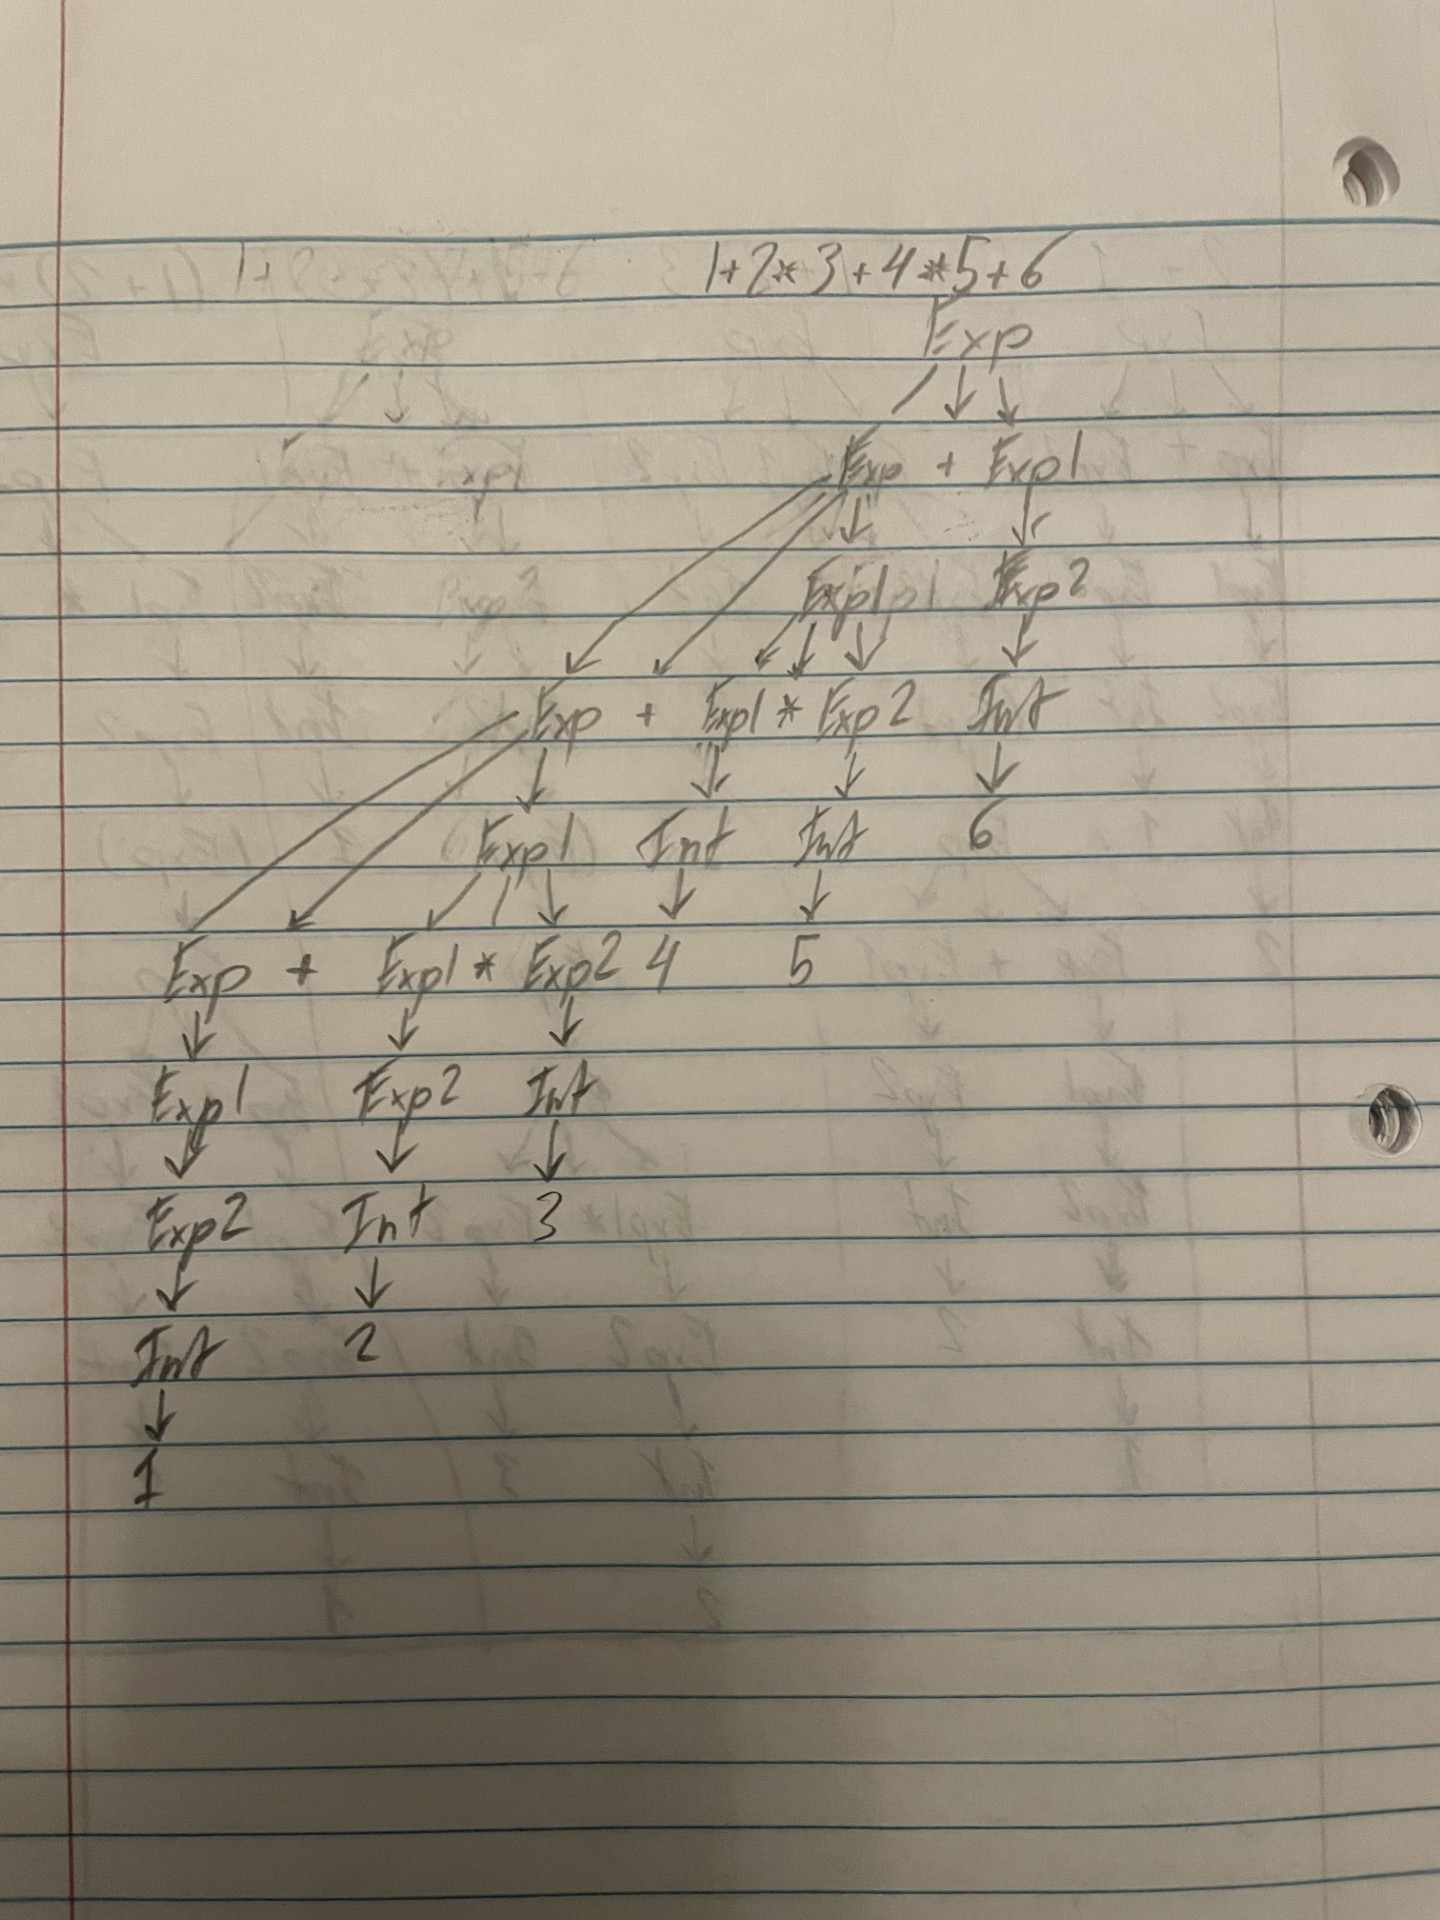 1+2*3+4*5+6
Exp
Exp + Exp1
Exp1 Exp2
Exp + Exp1 * Exp2 Int
Exp1 Int Int 6
Exp + Exp1 * Exp2 4 5
Exp1 Exp2 Int
Exp2 Int 3
Int 2
1